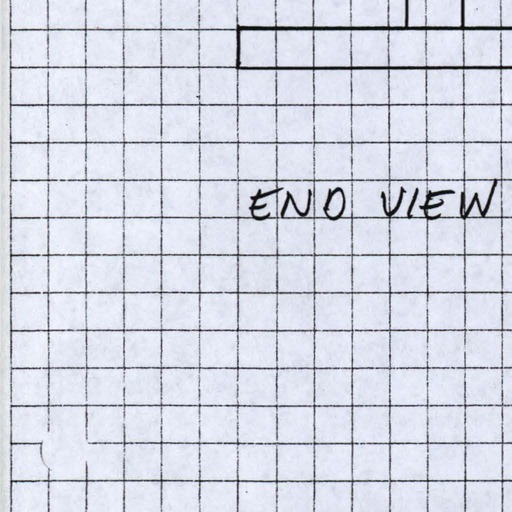 END VIEW